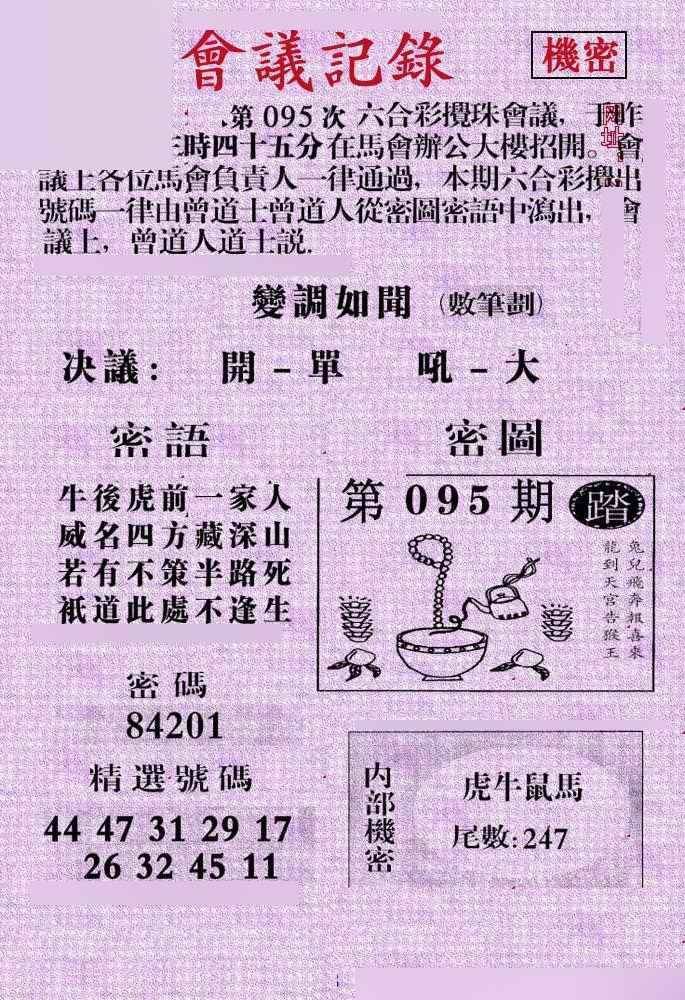 會議記錄
機密
第 095 次 六合彩攪珠會議，于昨
時四十五分在馬會辦公大樓招開。會
議上各位馬會負責人一律通過，本期六合彩攪出
號碼一律由曾道士曾道人從密圖密語中瀉出，會
議上，曾道人道士説.
网址
變調如聞 (數筆劃)
决議： 開－單 吼－大
密語
牛後虎前一家人
威名四方藏深山
若有不策半路死
衹道此處不逢生
密圖
第 095 期 踏
兔兒飛奔報喜來
龍到天宮告猴王
密碼
84201
精選號碼
44 47 31 29 17
26 32 45 11
内部機密
虎牛鼠馬
尾數:247